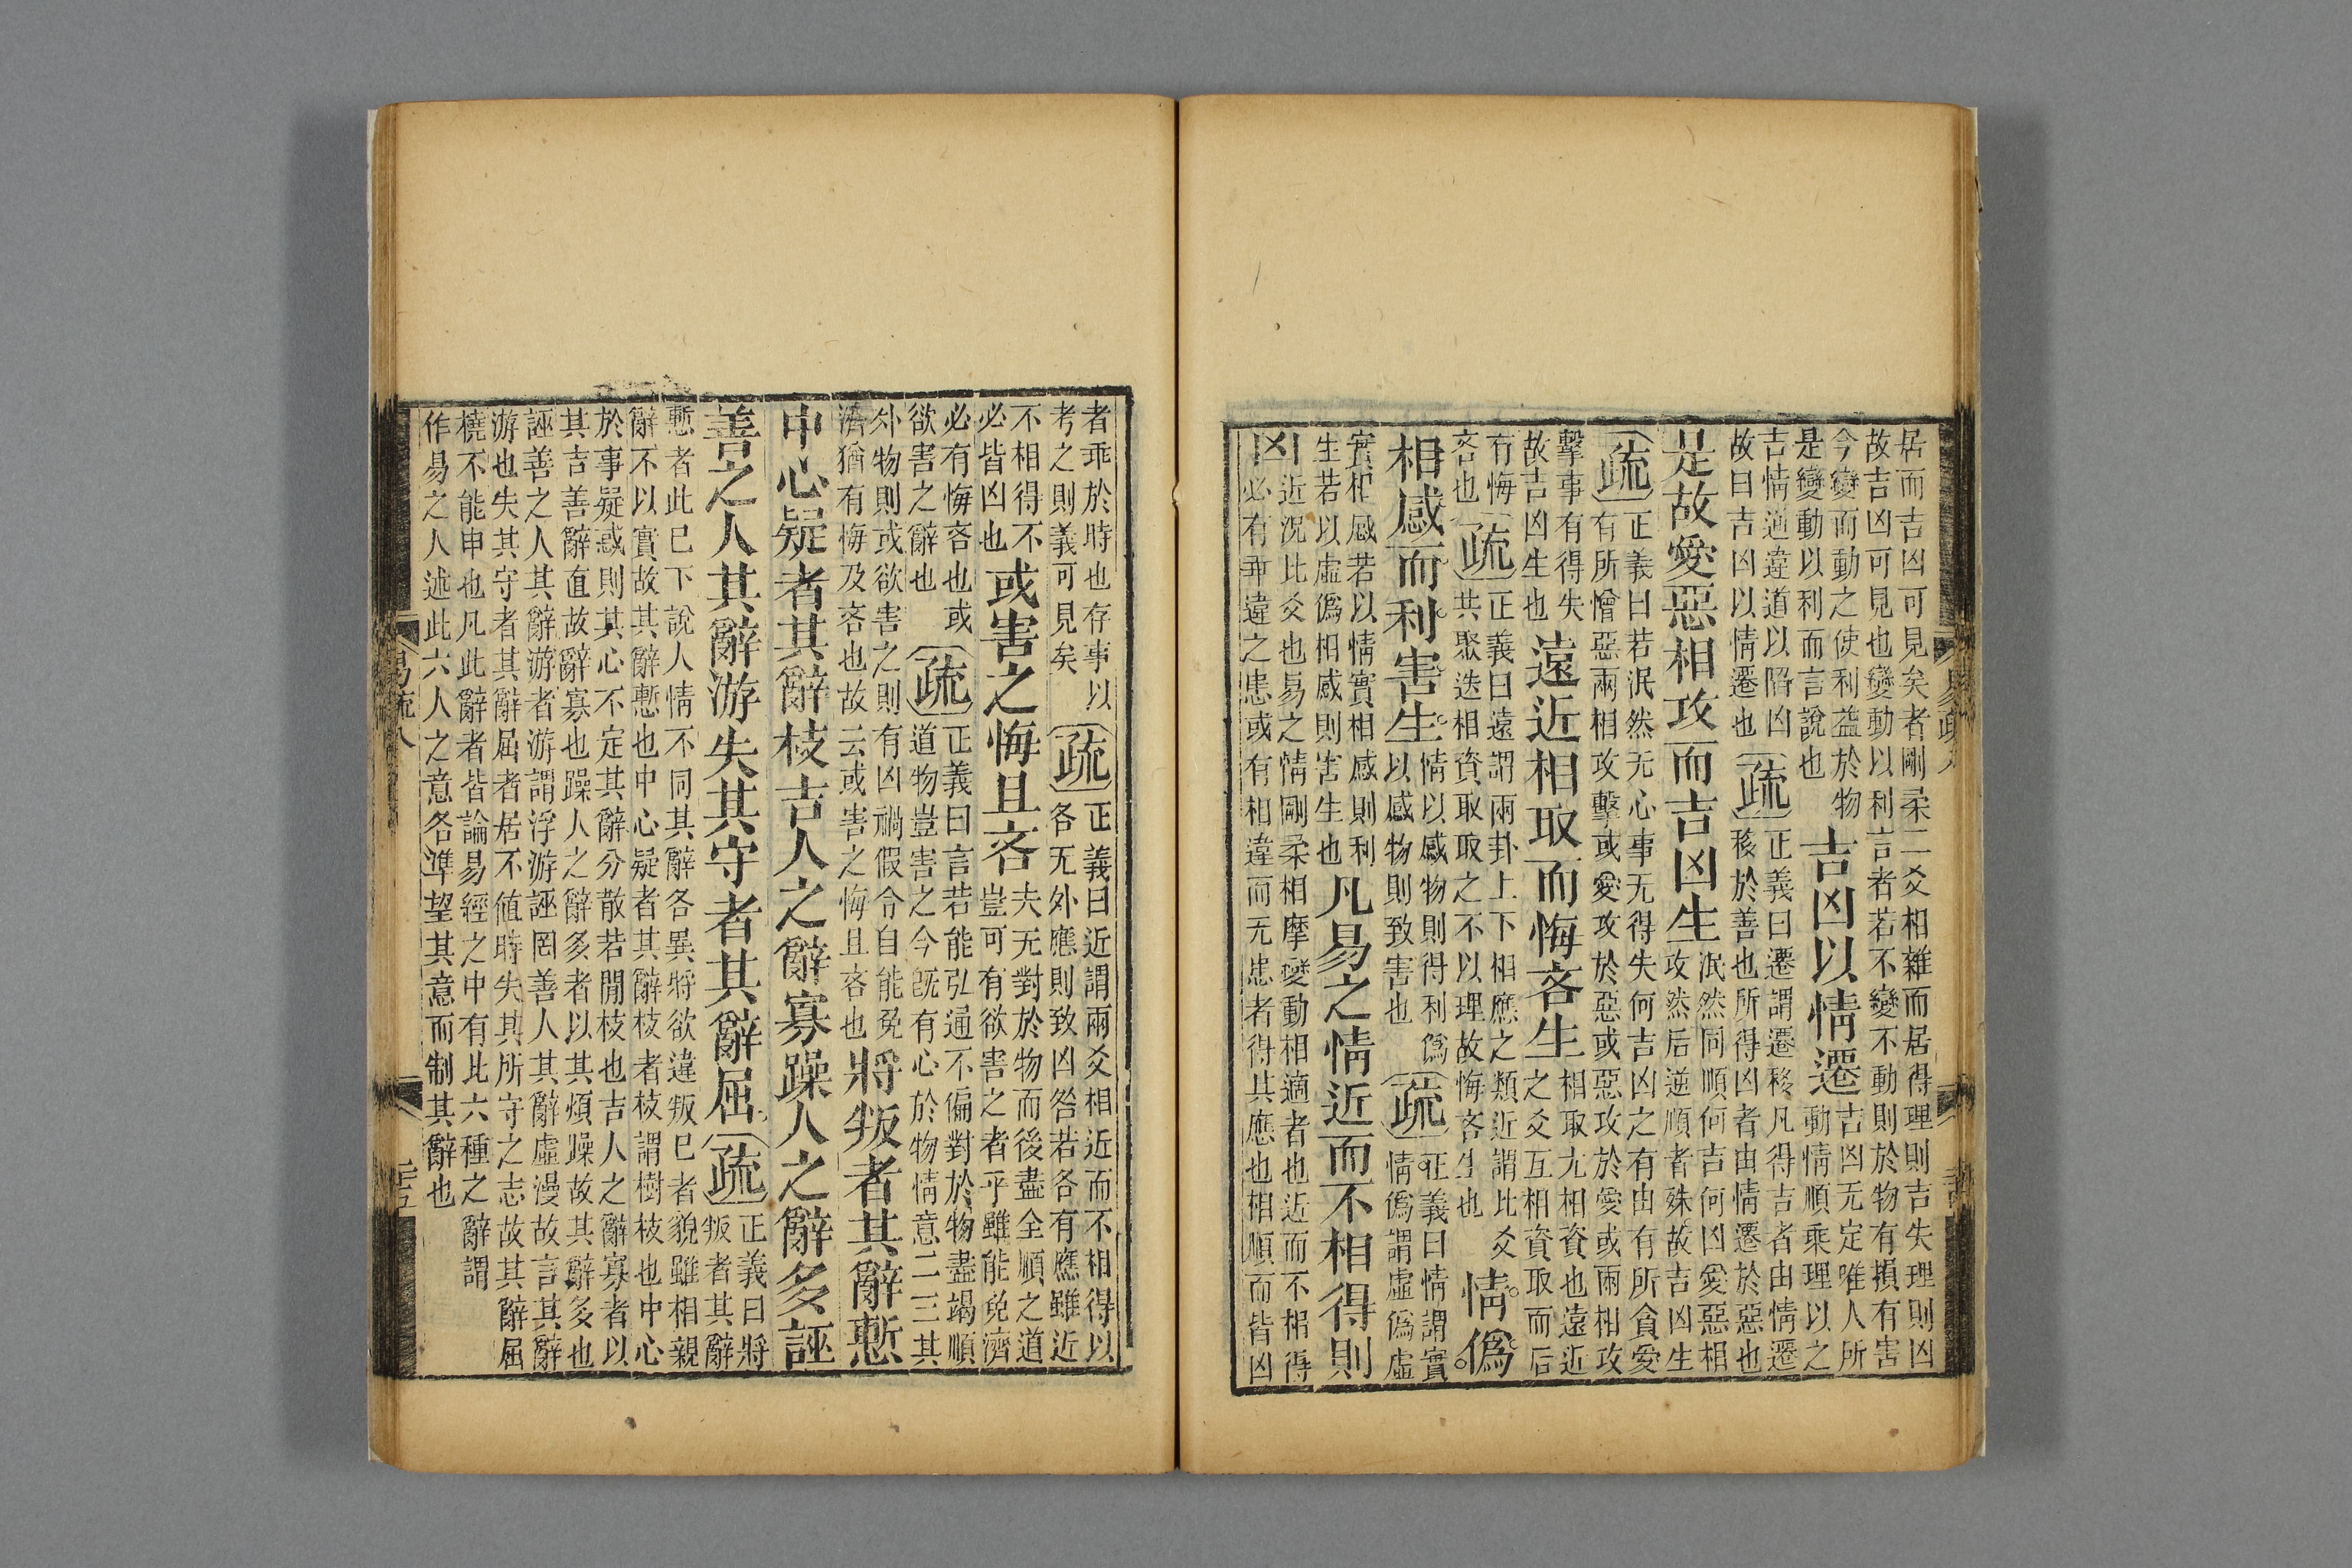 居而吉凶可見矣者剛柔二爻相雜而居得理則吉失理則凶
故吉凶可見也變動以利言者若不變不動則於物有損有害
今變而動之使利益於物
是變動以利而言說也
吉凶以情遷
吉凶无定唯人所
動情順乘理以之
吉情適違道以陷凶
故曰吉凶以情遷也
疏
正義曰遷謂遷移凡得吉者由情遷
移於善也所得凶者由情遷於惡也
是故愛惡相攻而吉凶生
泯然同順何吉何凶愛惡相
攻然后逆順者殊故吉凶生
疏
正義曰若泯然无心事无得失何吉凶之有由有所貪愛
有所憎惡兩相攻擊或愛攻於惡或惡攻於愛或兩相攻
擊事有得失
故吉凶生也
遠近相取而悔吝生
相取尢相資也遠近
之爻互相資取而后
有悔
吝也
疏
正義曰遠謂兩卦上下相應之類近謂比爻
共聚迭相資取取之不以理故悔吝生也
情僞
相感而利害生
情以感物則得利僞
以感物則致害也
疏
正義曰情謂實
情僞謂虛僞虛
實相感若以情實相感則利
生若以虛僞相感則害生也
凡易之情近而不相得則
凶
近況比爻也易之情剛柔相摩變動相適者也近而不相得
必有乖違之患或有相違而无患者得其應也相順而皆凶
者乖於時也存事以
考之則義可見矣
疏
正義曰近謂兩爻相近而不相得以
各无外應則致凶咎若各有應雖近
不相得不
必皆凶也
或害之悔且吝
夫无對於物而後盡全順之道
豈可有欲害之者乎雖能免濟
必有悔吝也或
欲害之辭也
疏
正義曰言若能弘通不偏對於物盡竭順
道物豈害之今既有心於物情意二三其
外物則或欲害之則有凶禍假令自能免
濟猶有悔及吝也故云或害之悔且吝也
將叛者其辭慙
中心疑者其辭枝吉人之辭寡躁人之辭多誣
善之人其辭游失其守者其辭屈
疏
正義曰將
叛者其辭
慙者此已下說人情不同其辭各異將欲違叛已者貌雖相親
辭不以實故其辭慙也中心疑者其辭枝者枝謂樹枝也中心
於事疑惑則其心不定其辭分散若閒枝也吉人之辭寡者以
其吉善辭直故辭寡也躁人之辭多者以其煩躁故其辭多也
誣善之人其辭游者游謂浮游誣罔善人其辭虛漫故言其辭
游也失其守者其辭屈者居不值時失其所守之志故其辭屈
橈不能申也凡此辭者皆論易經之中有此六種之辭謂
作易之人述此六人之意各準望其意而制其辭也
易疏八